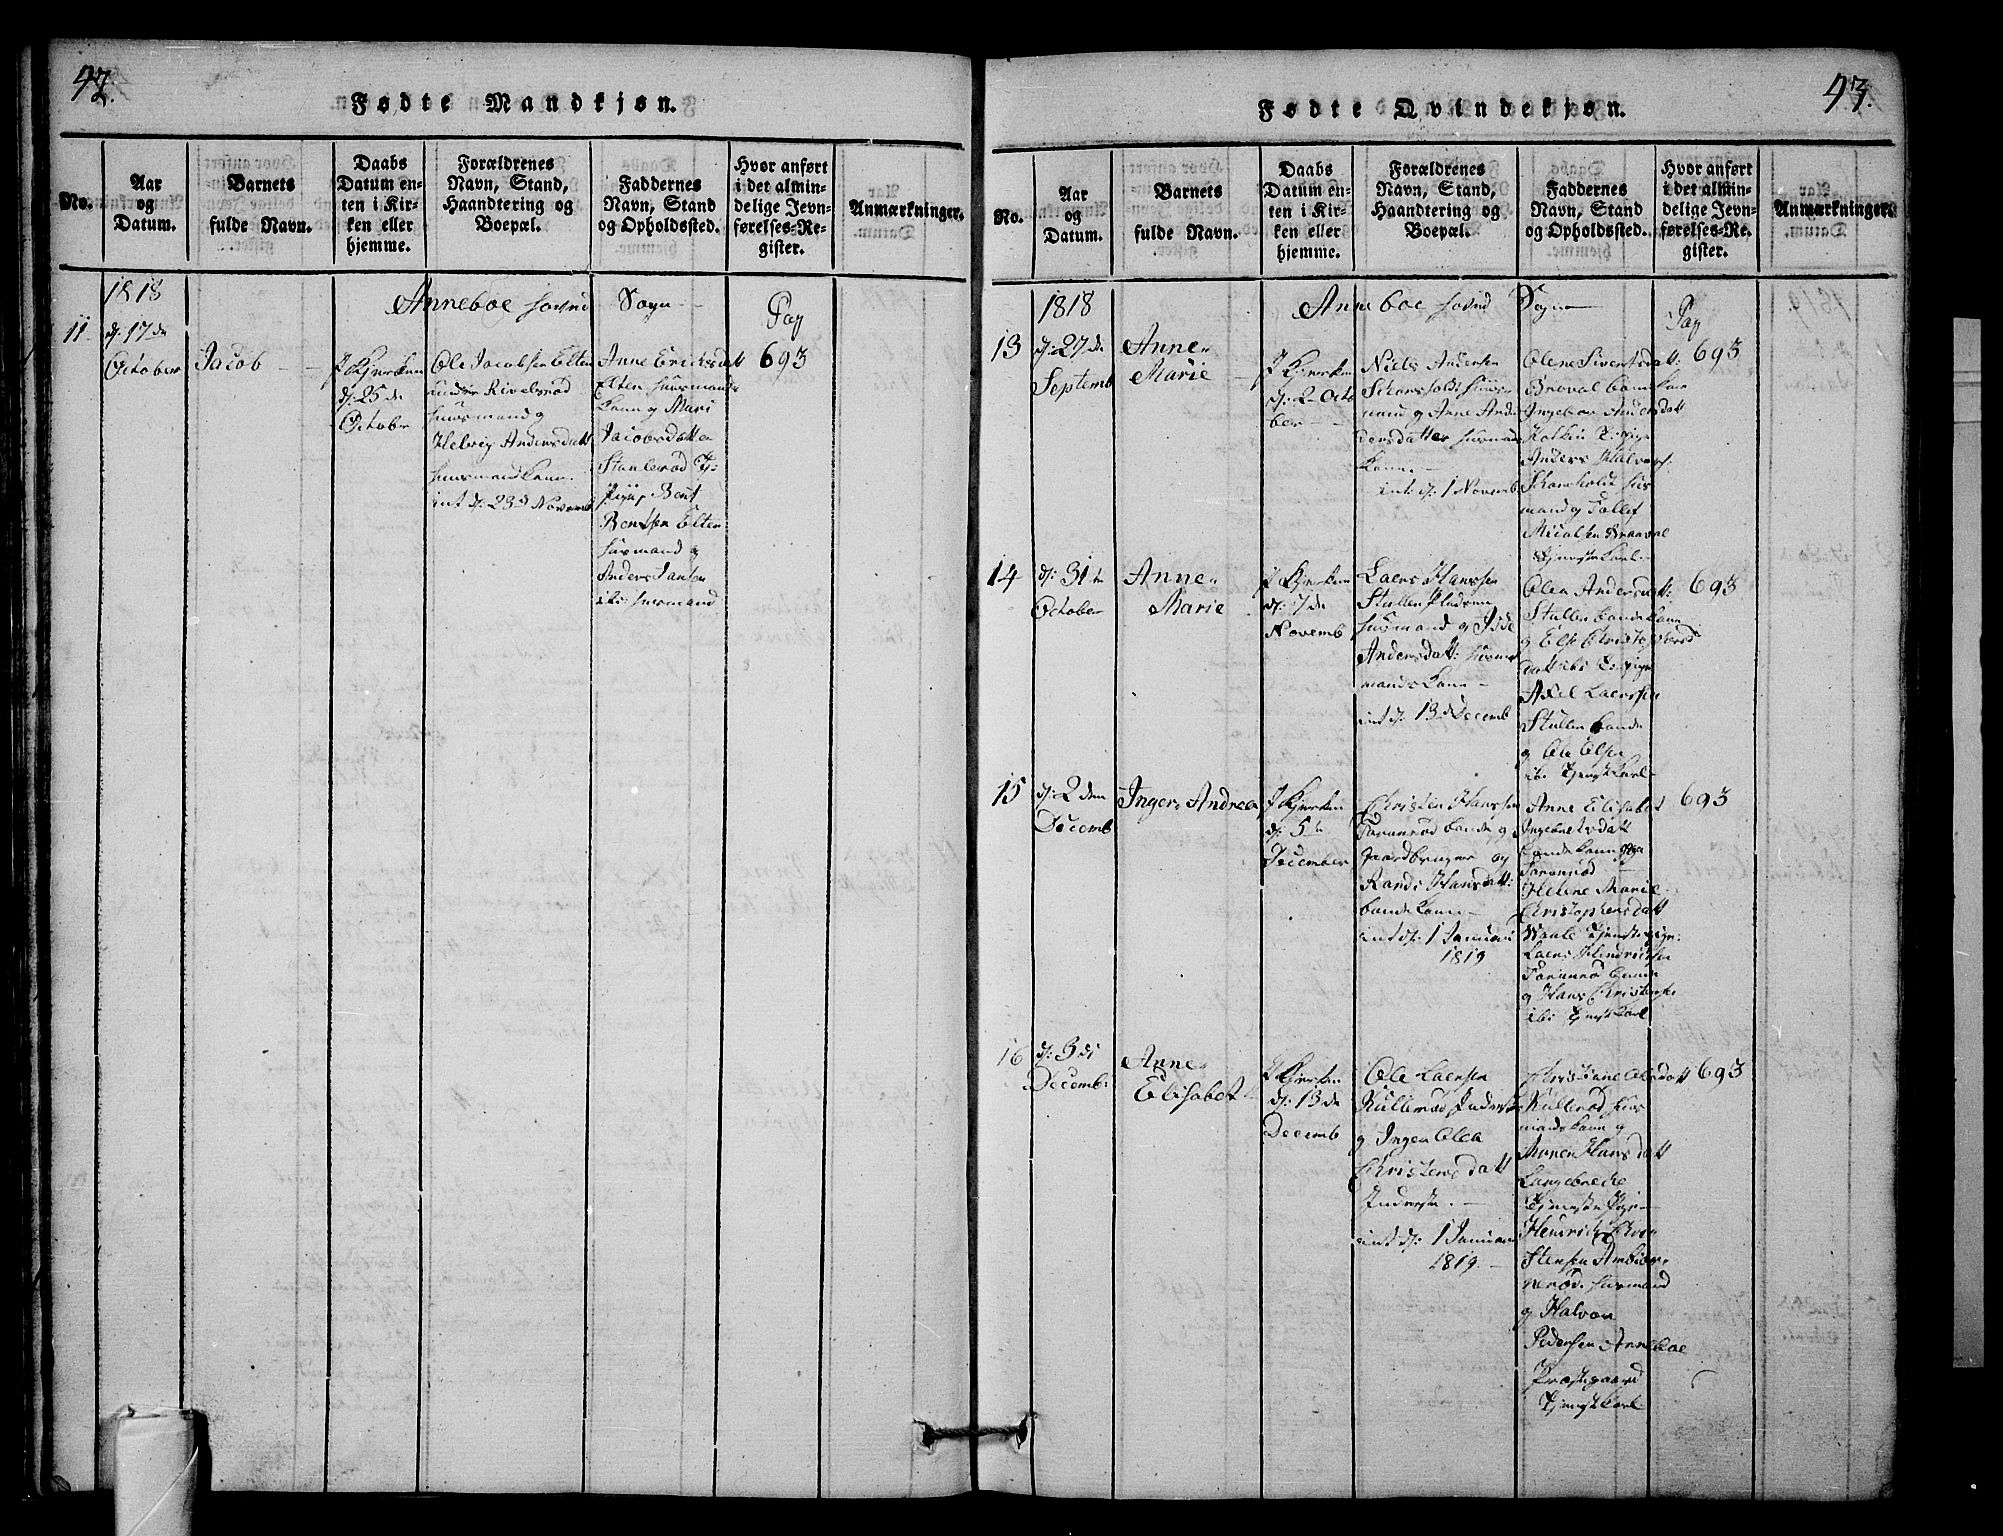 42.
Fødte Mandkjøn.
No.
Aar
og
Datum.
Barnets
fulde Navn.
Daabs
Datum en-
ten i Kir-
ken eller
hjemme.
Forældrenes
Navn, Stand,
Haandtering og
Boepæl.
Faddernes
Navn, Stand
og Opholdssted.
Hvor anført
i det almin-
delige Jevn-
førelses-Re-
gister.
Anmærkninger.
1818
Anneboe Sogn
Pag
11.
d: 17de
October
Jacob
I Kjerken
d: 25de
October
Ole Jacobsen Elten
under
huusmand og
Helvig Andersdatt
huusmandskone.
int d: 23d Novemb
Anne Ericksdatt
Elten huusmands
kone og Mari
Jacobsdatter
Bent
Bentsen Elten
huusmand og
Anders Jansen
ibi huusmand
693
43.
Fødte Qvindekjøn.
No.
Aar
og
Datum.
Barnets
fulde Navn.
Daabs
Datum en-
ten i Kir-
ken eller
hjemme.
Forældrenes
Navn, Stand,
Haandtering og
Boepæl.
Faddernes
Navn, Stand
og Opholdssted.
Hvor anført
i det almin-
delige Jevn-
førelses-Re-
gister.
Anmærkninger.
1818
Anneboe Sogn
Pag
13
d: 27de
Septemb
Anne
Marie
I Kjerken
d: 2 Octo
ber
Niels Andersen
mand og Anne An
dersdatter huusmands
kone.
int: d: 1 Novemb
Olene Sivertsdatt:
Bondekone
Ingebor Andersdatt
Anders Halvors:
huus
mand og Tollef
Tjenstkarl
693
14
d: 31te
October
Anne
Marie
I Kjerken
d: 7de
Novemb
Laers Hanssen
Stullen
huusmand og
Andersdatt: huus
mandskone
int d: 13 Decemb
Olea Andersdatt:
Stullen bondekone
og Else Christophers
datt ibi
Axel Laerssen
Stullen bonde
og Ole Olsen
ibi Tjenstkarl
693
15
d: 2den
Decemb
Inger Andrea
I Kjerken
d: 5te
December
Christen Hanssen
bonde og
gaardbruger og
Randi Hansdatt:
bondekone
int d: 1 Januari
1819
Anne Elisabet
Ingebretsdatt
bondekone
Helene Marie
Christophersdatt
Laers Hendrichsen
bonde
og Hans Christensen
ibi Tjenstkarl
693
16
d: 3di
Decemb:
Anne
Elisabet
I Kjerken
d: 13de
Decemb
Ole Laersen
Kullerød Inderste
og Inger Olea
Christensdatt
Inderste.
int d: 1 Januari
1819.
Christiane Olsdatt
Kullerød huus
mandskone og
Maren Hansdatt
Langebrecke
Tjenste Pige
Hendrich Chri
stensen
huusmand
og Halvor
Pedersen Anneboe
Præstegaard
Tjenstkarl
693